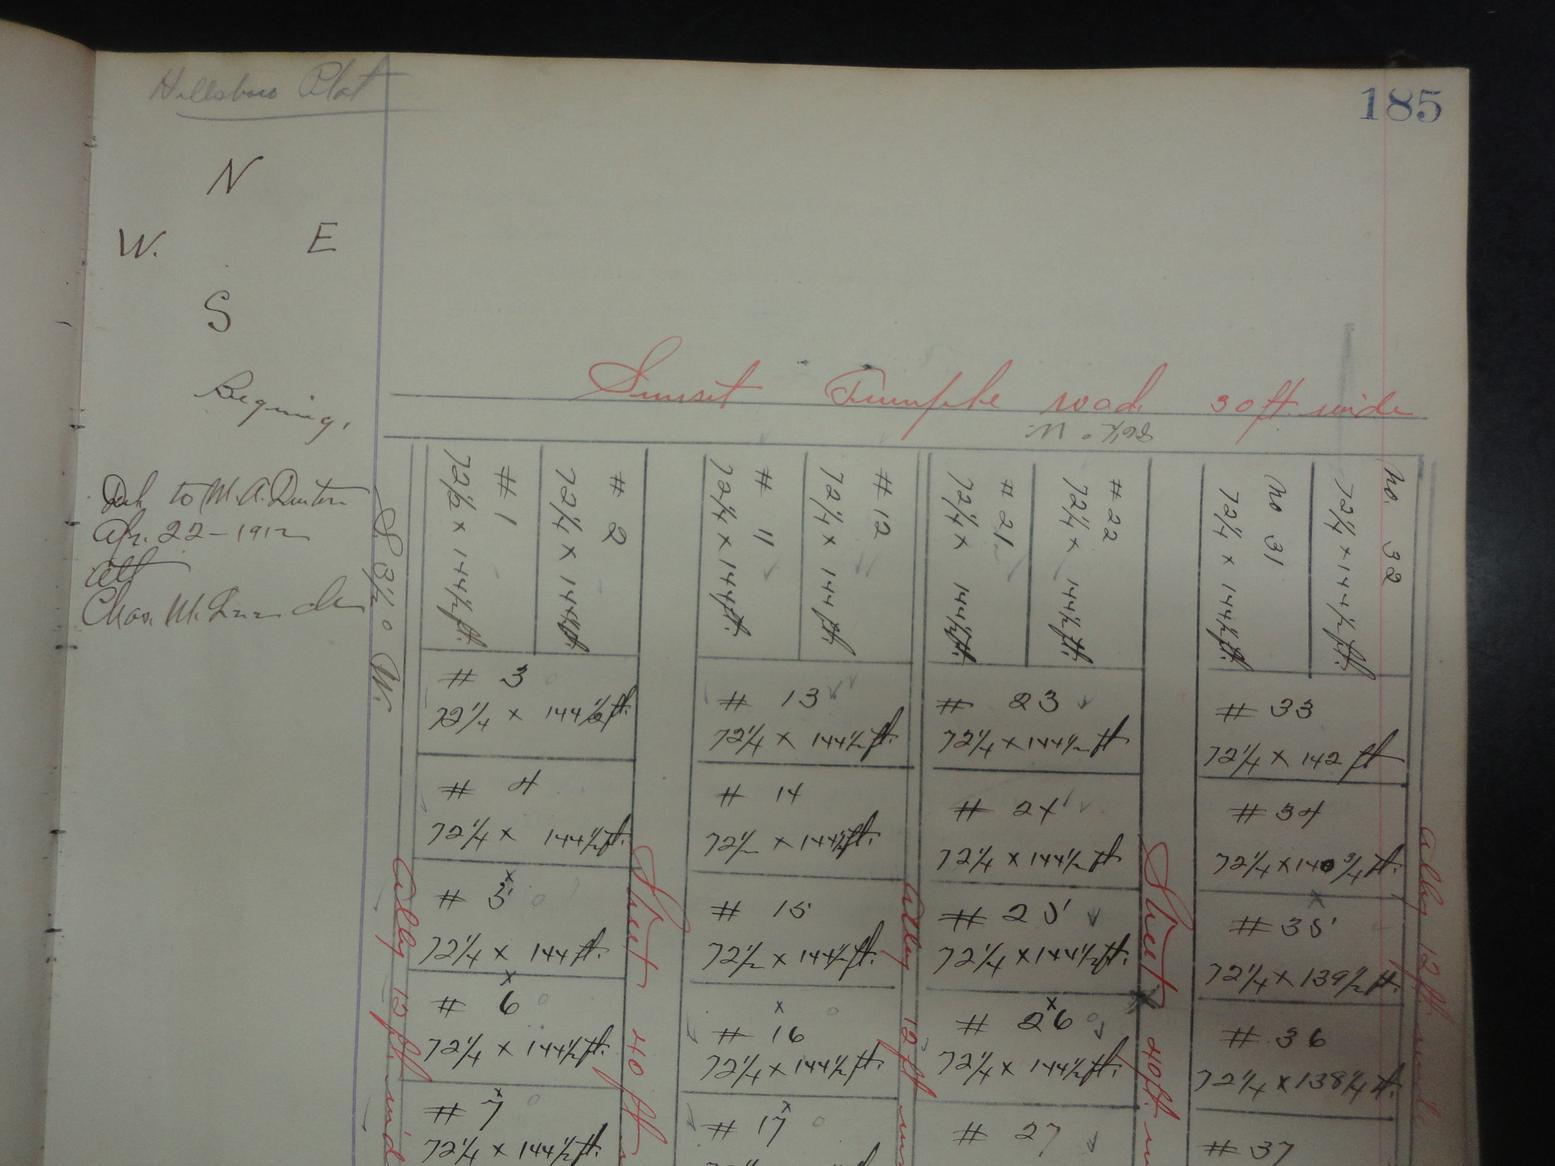 Hillsboro Plat
185
N
W. E
S
Begining,
Del to M. A. Denton
Apr. 22 - 1912
Att
Chas. M.
Sunset road 30 ft. wide
S 3½° W.
# 1
72½ x 144½ ft.
# 2
72¼ x 144 ft.
# 11
72¼ x 144 ft.
# 12
72¼ x 144 ft.
# 21
72¼ x 144½ ft.
# 22
72¼ x 144½ ft.
No 31
72¼ x 144½ ft
No. 32
72¼ x 144½ ft
# 3
72¼ x 144½ ft.
# 13
72¼ x 144½ ft.
# 23
72¼ x 144½ ft
# 33
72¼ x 142 ft
# 4
72¼ x 144½ ft.
# 14
72½ x 144½ ft.
# 24
72¼ x 144½ ft
# 34
72¼ x 140 3/4 ft.
# 5
72¼ x 144 ft.
# 15
72½ x 144½ ft.
# 25
72¼ x 144½ ft.
# 35
72¼ x 139½ ft.
# 6
72¼ x 144½ ft.
# 16
72¼ x 144½ ft.
# 26
72¼ x 144½ ft.
# 36
72¼ x 138¼ ft.
# 7
72¼ x 144½ ft.
# 17
# 27
# 37
Alley 12 ft. wide
Street 40 ft
Alley 12 ft
Street 40 ft.
Alley 12 ft. wide